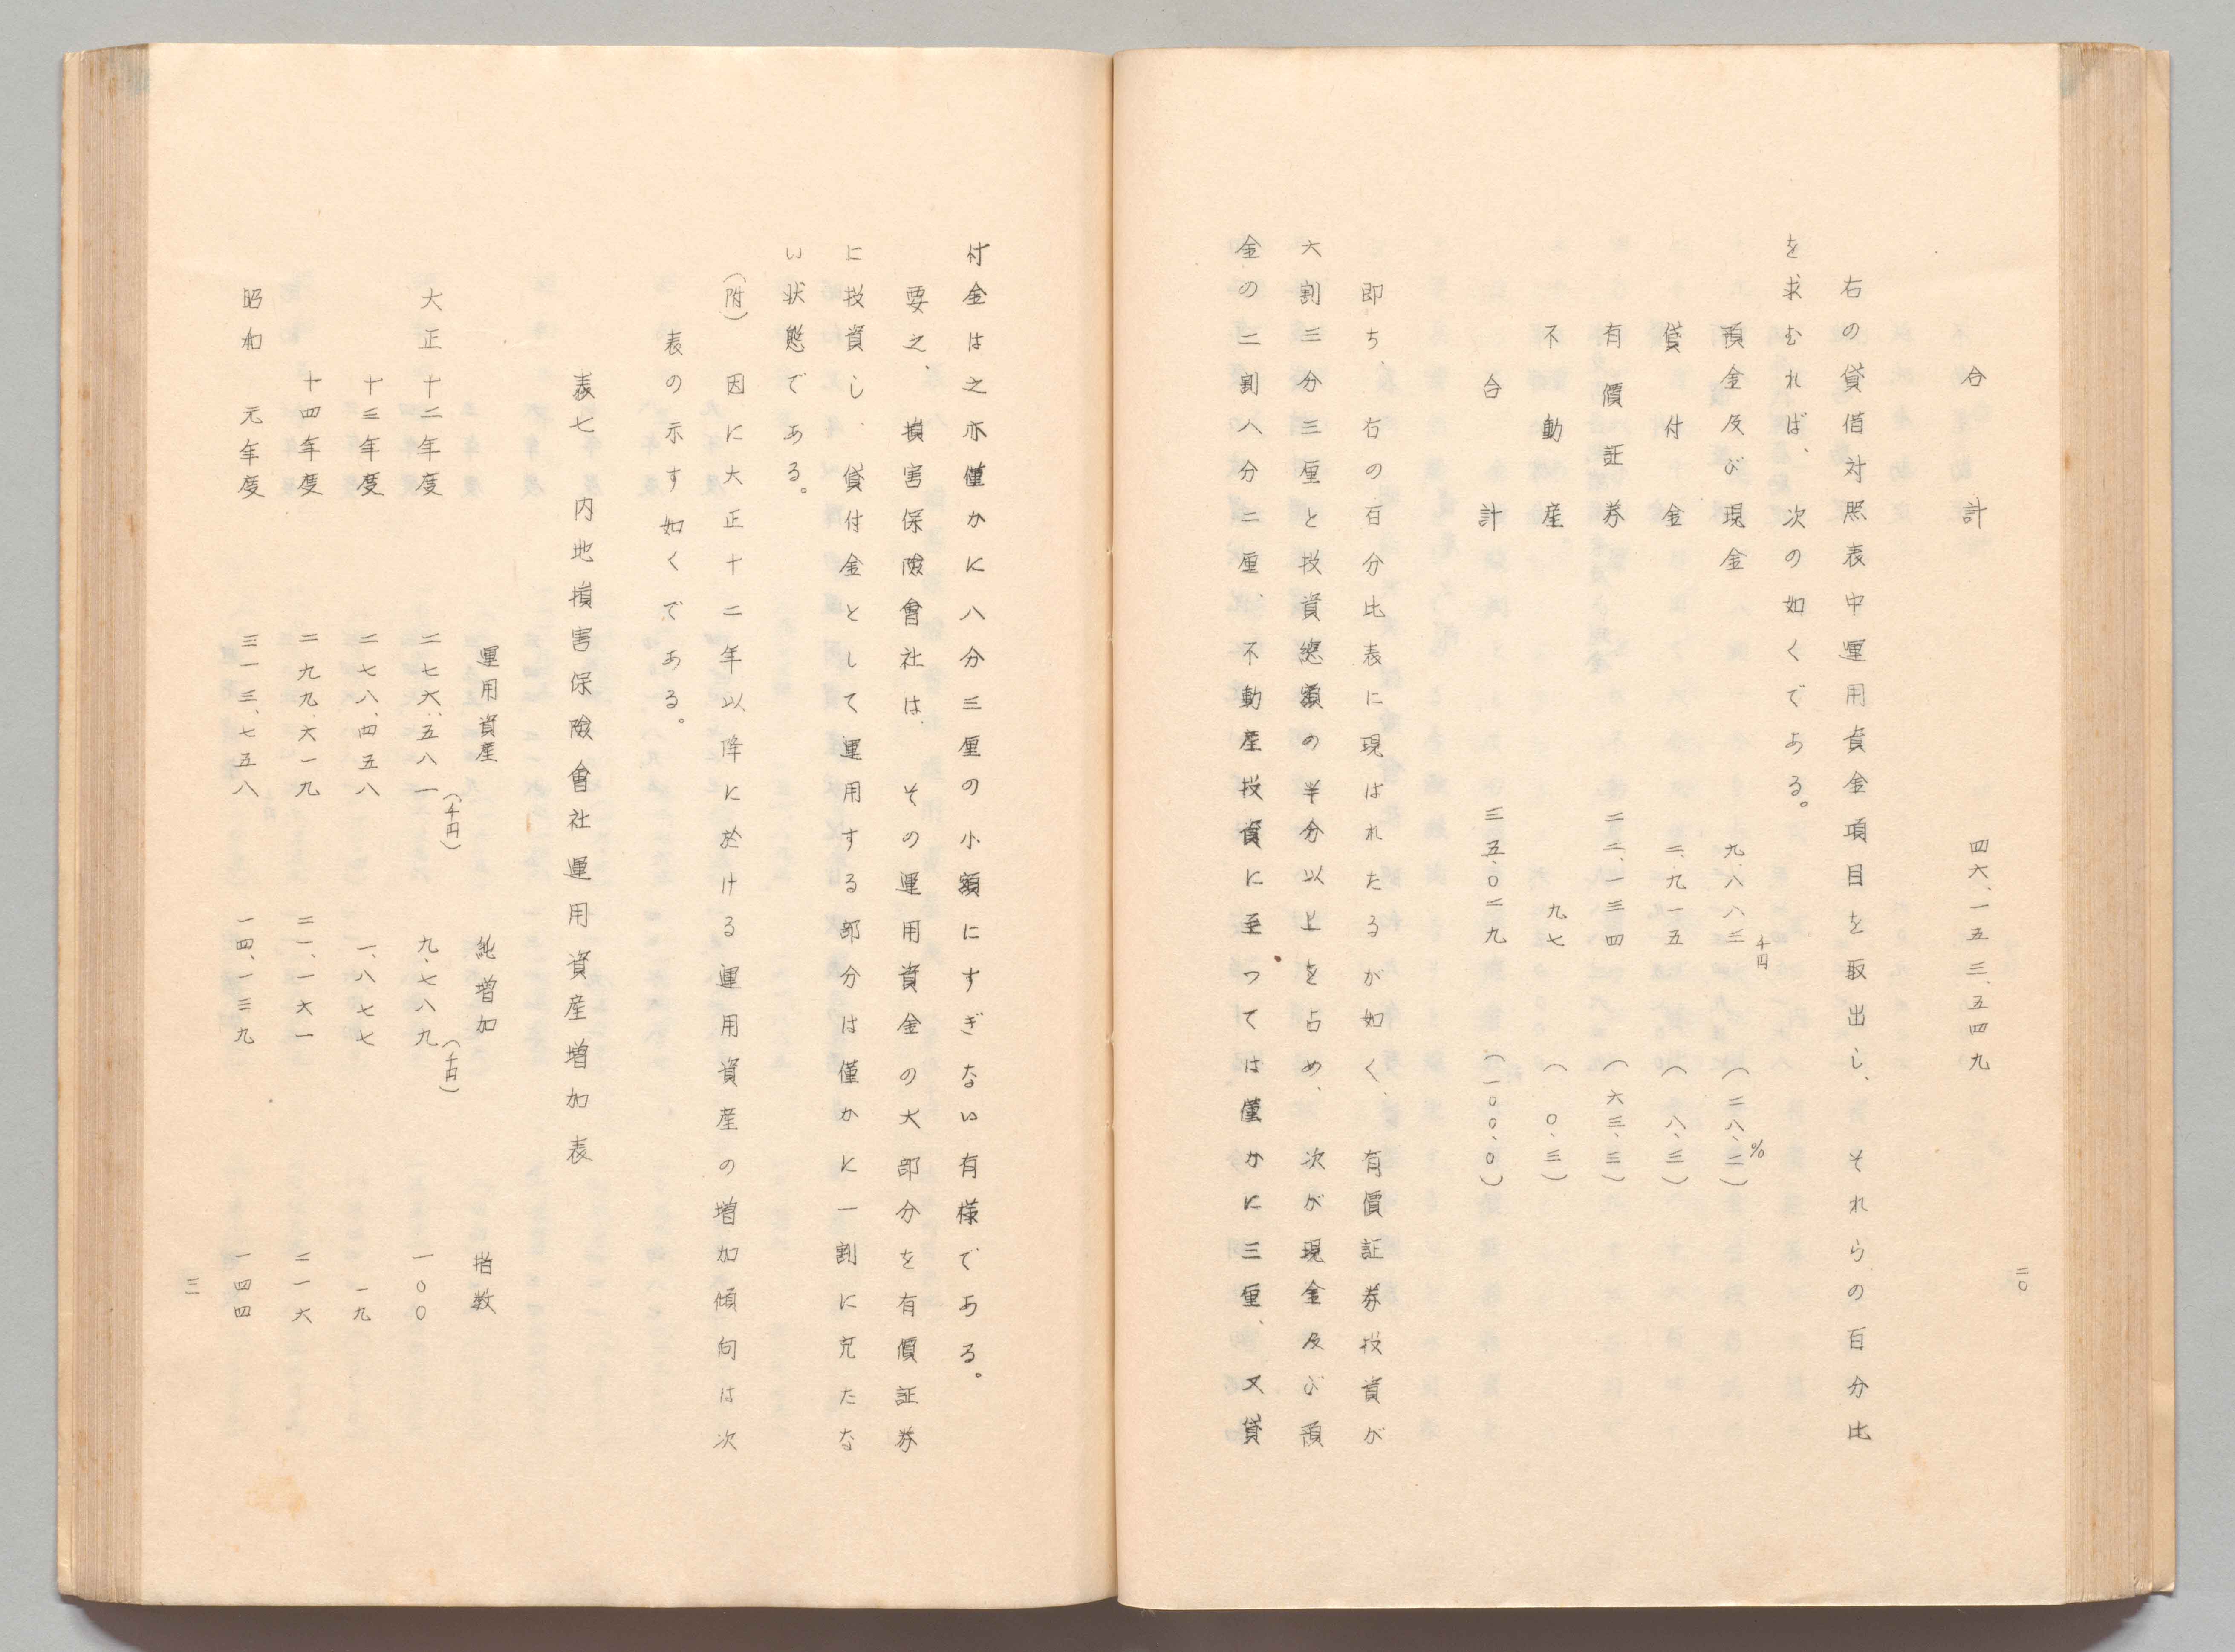 二〇
合計　四六、一五三、五四九
右の貸借対照表中運用資金項目を取出し、それらの百分比
を求むれば、次の如くである。
千円　%
預金及び現金　九、八八三　（二八、二）
貸付金　二、九一五　（八、三）
有價証券　二二、一三四　（六三、三）
不動産　九七　（〇、三）
合計　三五、〇二九　（一〇〇、〇）
即ち、右の百分比表に現はれたるが如く、有價証券投資が
六割三分三厘と投資總額の半分以上を占め、次が現金及び預
金の二割八分二厘、不動産投資に至つては僅かに三厘、又貸
付金は之亦僅かに八分三厘の小額にすぎない有様である。
要之、損害保險會社は、その運用資金の大部分を有價証券
に投資し、貸付金として運用する部分は僅かに一割に充たな
い状態である。
（附）因に大正十二年以降に於ける運用資産の増加傾向は次
表の示す如くである。
表七　内地損害保險會社運用資産増加表
運用資産　純増加　指数
（千円）　（千円）
大正十二年度　二七六、五八一　九、七八九　一〇〇
十三年度　二七八、四五八　一、八七七　一九
十四年度　二九九、六一九　二一、一六一　二一六
昭和元年度　三一三、七五八　一四、一三九　一四四
二一